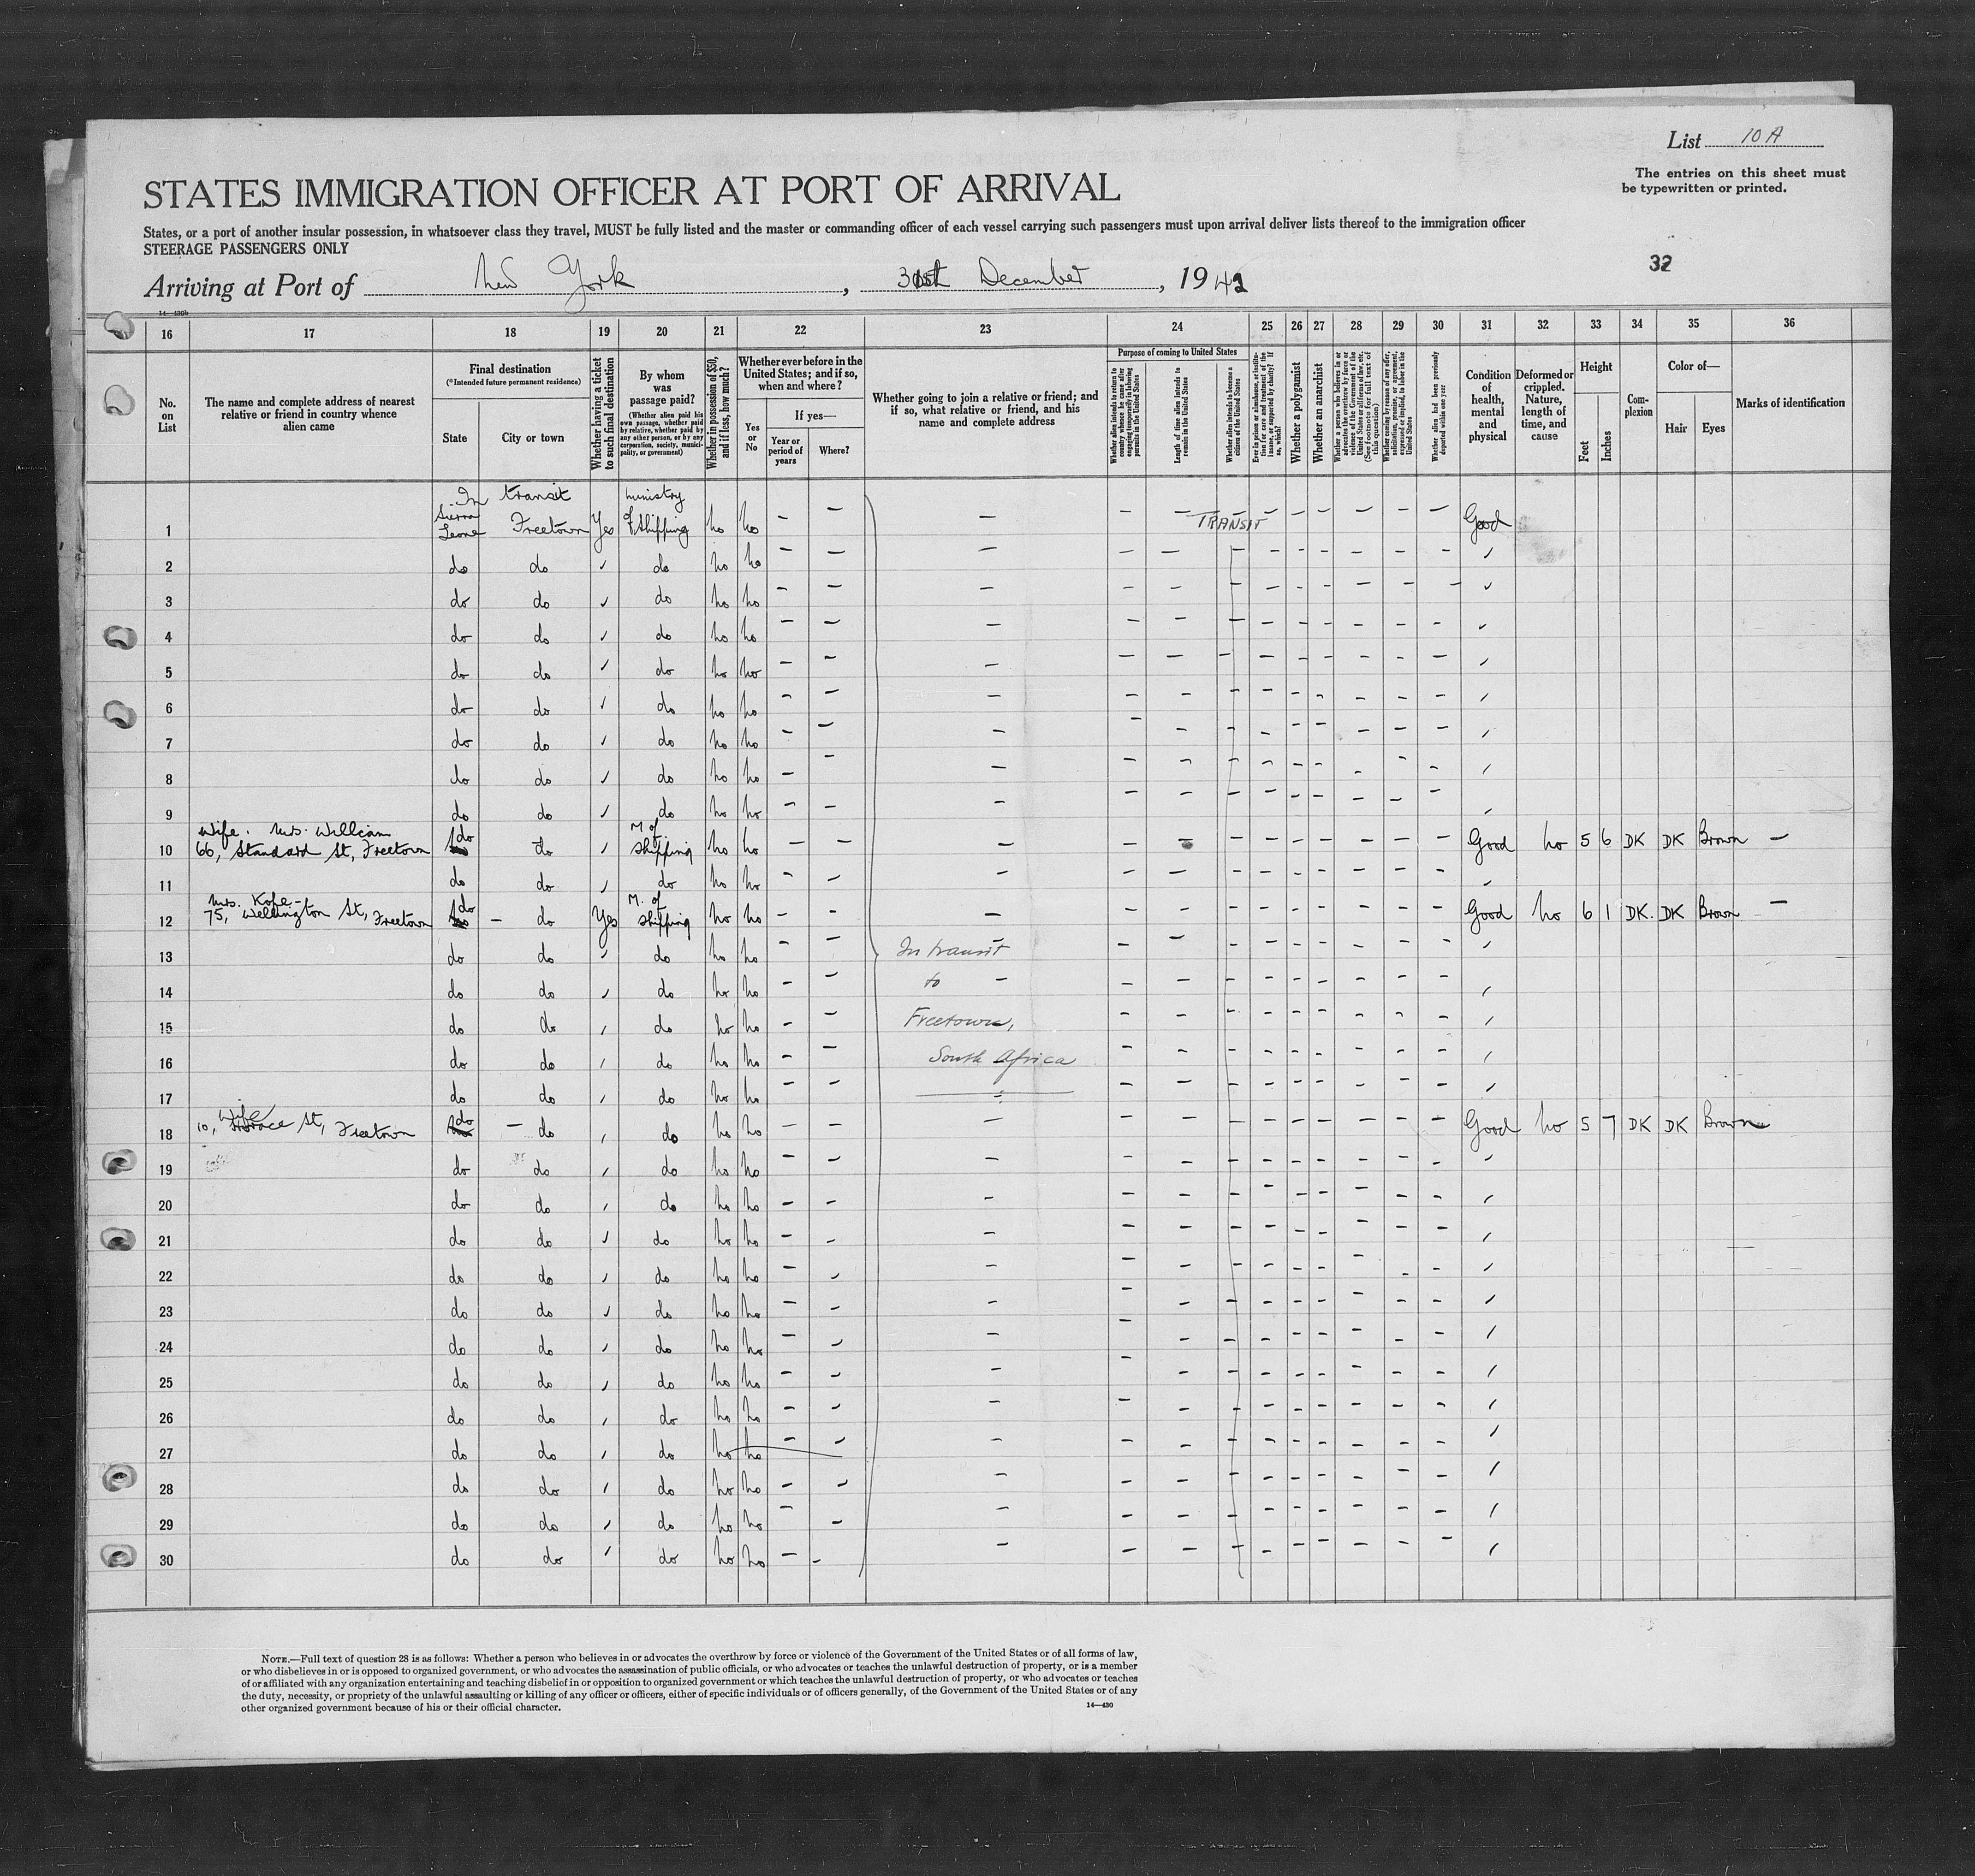 List 10 A
The entries on this sheet must
be typewritten or printed.
STATES IMMIGRATION OFFICER AT PORT OF ARRIVAL
States, or a port of another insular possession, in whatsoever class they travel, MUST be fully listed and the master or commanding officer of each vessel carrying such passengers must upon arrival deliver lists thereof to the immigration officer
STEERAGE PASSENGERS ONLY
32
Arriving at Port of New York, 31st December, 1941
14—430b
16 17 18 19 20 21 22 23 24 25 26 27 28 29 30 31 32 33 34 35 36
No. on List
The name and complete address of nearest
relative or friend in country whence
alien came
Final destination
(*Intended future permanent residence)
State
City or town
Whether having a ticket
to such final destination
By whom
was
passage paid?
(Whether alien paid his
own passage, whether paid
by relative, whether paid by
any other person, or by any
corporation, society, munici-
pality, or government)
Whether in possession of $50,
and if less, how much?
Whether ever before in the
United States; and if so,
when and where?
Yes or No
If yes—
Year or period of years
Where?
Whether going to join a relative or friend; and
if so, what relative or friend, and his
name and complete address
Purpose of coming to United States
Whether alien intends to return to
country whence he came after
engaging temporarily in laboring
pursuits in the United States
Length of time alien intends to
remain in the United States
Whether alien intends to become a
citizen of the United States
Ever in prison or almshouse, or institu-
tion for care and treatment of the
insane, or supported by charity? If
so, which?
Whether a polygamist
Whether an anarchist
Whether a person who believes in or
advocates the overthrow by force or
violence of the Government of the
United States or all forms of law, etc.
(See footnote for full text of
this question)
Whether coming by reason of any offer,
solicitation, promise, or agreement,
expressed or implied, to labor in the
United States
Whether alien had been previously
deported within one year
Condition
of
health,
mental
and
physical
Deformed or
crippled.
Nature,
length of
time, and
cause
Height
Feet
Inches
Com-
plexion
Color of—
Hair
Eyes
Marks of identification
In transit Ministry
1 Sierra Leone Freetown Yes of Shipping No No — — — — — TRANSIT — — — — — — Good
2 do do ✓ do No No — — — — — — — — — — — — ✓
3 do do ✓ do No No — — — — — — — — — — — — ✓
4 do do ✓ do No No — — — — — — — — — — — — ✓
5 do do ✓ do No No — — — — — — — — — — — — ✓
6 do do ✓ do No No — — — — — — — — — — — — ✓
7 do do ✓ do No No — — — — — — — — — — — — ✓
8 do do ✓ do No No — — — — — — — — — — — — ✓
9 do do ✓ do No No — — — — — — — — — — — — ✓
Wife. Mrs. William M of
10 66, Standard St, Freetown do do ✓ Shipping No No — — — — — — — — — — — — Good No 5 6 DK DK Brown —
11 do do ✓ do No No — — — — — — — — — — — — ✓
Mrs. Kofe- M. of
12 75, Wellington St, Freetown do — do Yes Shipping No No — — — — — — — — — — — — Good No 6 1 DK. DK Brown —
13 do do ✓ do No No — — In transit — — — — — — — — — — ✓
14 do do ✓ do No No — — to — — — — — — — — — — ✓
15 do do ✓ do No No — — Freetown, — — — — — — — — — ✓
16 do do ✓ do No No — — South Africa — — — — — — — — — ✓
17 do do ✓ do No No — — — — — — — — — — — — ✓
Wife
18 10, St, Freetown do — do ✓ do No No — — — — — — — — — — Good No 5 7 DK DK Brown
19 do do ✓ do No No — — — — — — — — — — — — ✓
20 do do ✓ do No No — — — — — — — — — — — — ✓
21 do do ✓ do No No — — — — — — — — — — — — ✓
22 do do ✓ do No No — — — — — — — — — — — — ✓
23 do do ✓ do No No — — — — — — — — — — — — ✓
24 do do ✓ do No No — — — — — — — — — — — — ✓
25 do do ✓ do No No — — — — — — — — — — — — ✓
26 do do ✓ do No No — — — — — — — — — — — — ✓
27 do do ✓ do No No — — — — — — — — — — — — ✓
28 do do ✓ do No No — — — — — — — — — — — — ✓
29 do do ✓ do No No — — — — — — — — — — — — ✓
30 do do ✓ do No No — — — — — — — — — — — — ✓
NOTE.—Full text of question 28 is as follows: Whether a person who believes in or advocates the overthrow by force or violence of the Government of the United States or of all forms of law,
or who disbelieves in or is opposed to organized government, or who advocates the assassination of public officials, or who advocates or teaches the unlawful destruction of property, or is a member
of or affiliated with any organization entertaining and teaching disbelief in or opposition to organized government or which teaches the unlawful destruction of property, or who advocates or teaches
the duty, necessity, or propriety of the unlawful assaulting or killing of any officer or officers, either of specific individuals or of officers generally, of the Government of the United States or of any
other organized government because of his or their official character.
14—430